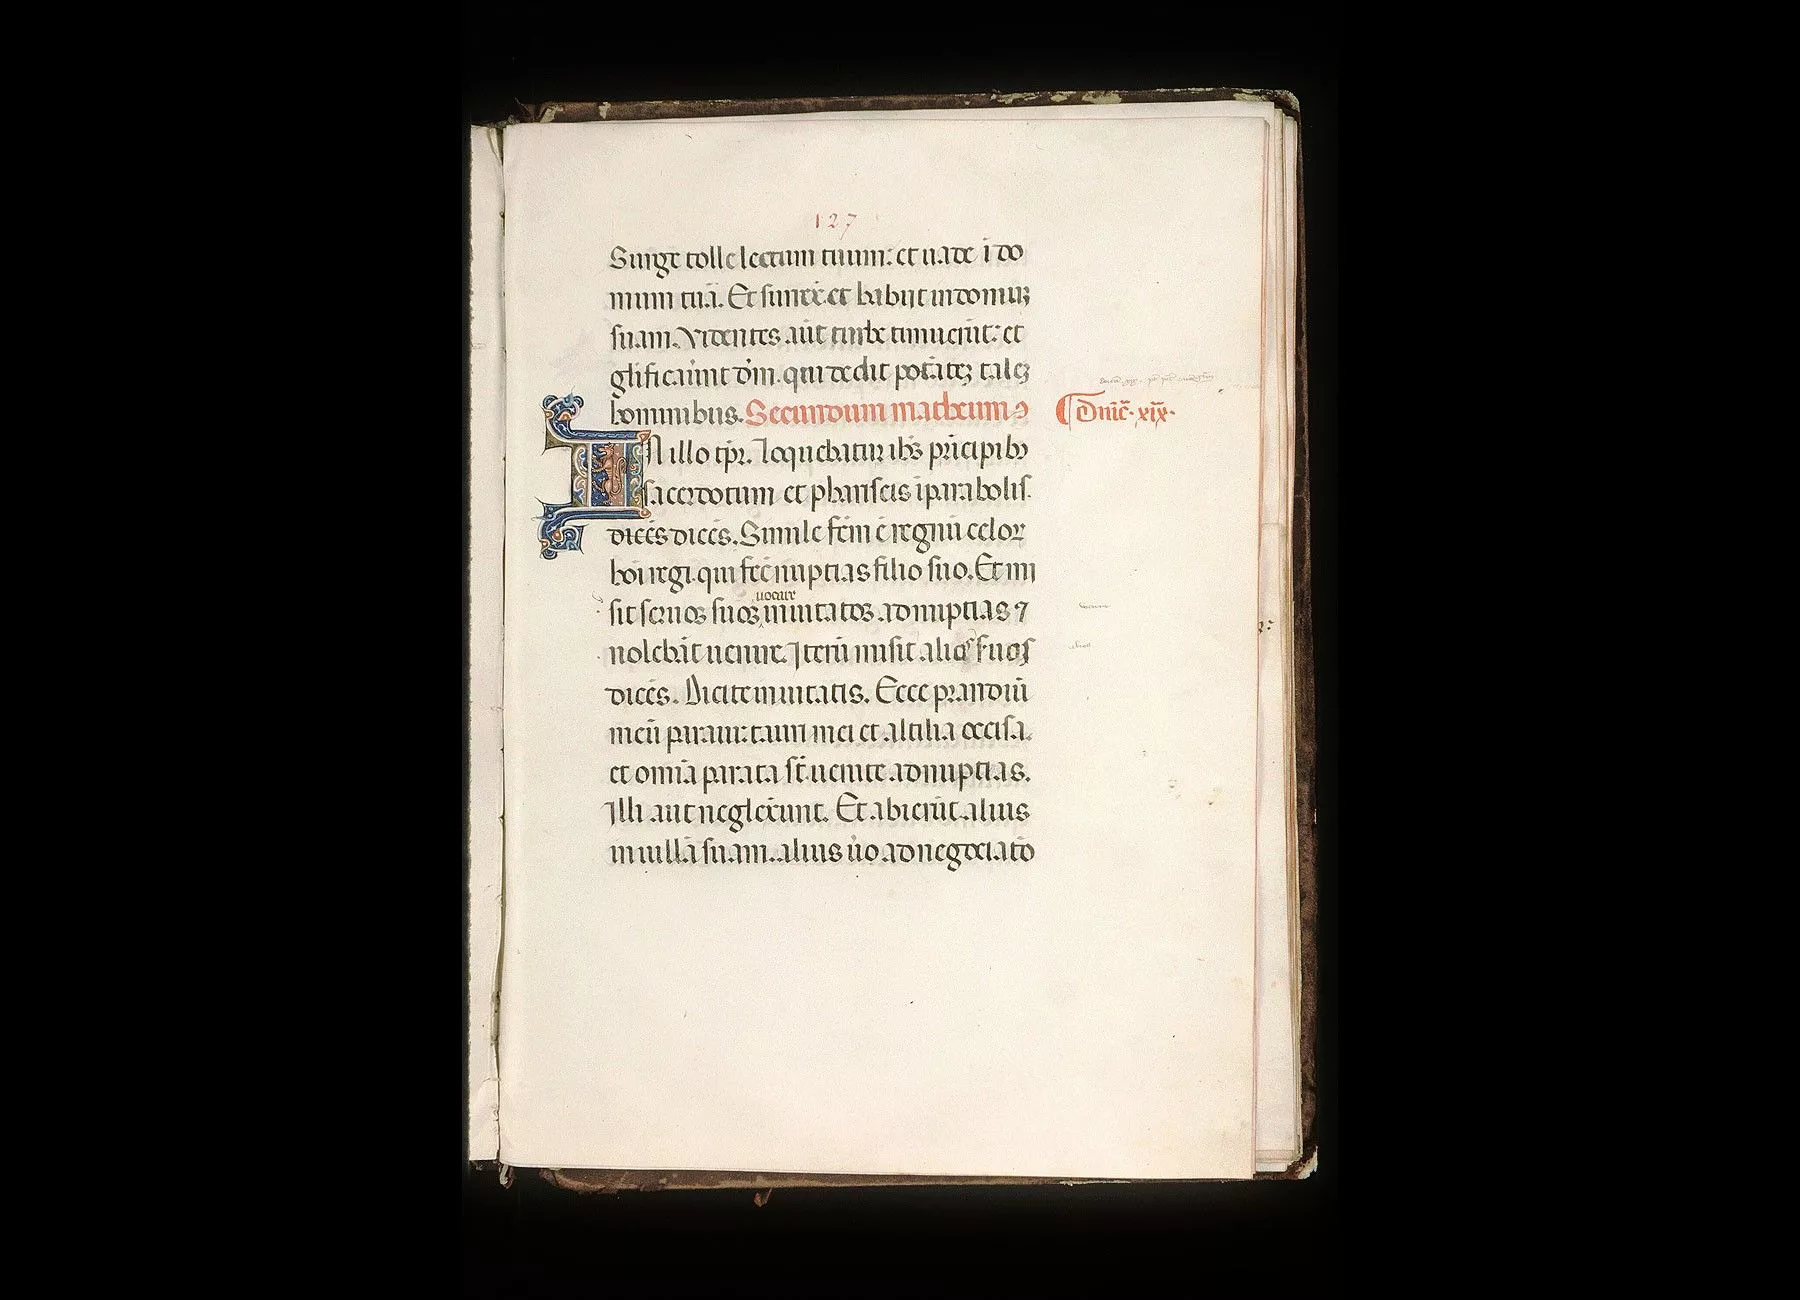 127
Surge tolle lectum tuum: et uade i do
mum tuā. Et surrex̄. et habijt in domuꝫ
suam. Videntes aūt turbe timuerūt: et
gl̄ificauūnt dm̄. qui dedit potātēꝫ taleꝫ
hominibus. Secundum matheum
Dn̄ic̄. xix.
IN illo tp̄r. loquebatur ih̄s pricipibꝫ
sacerdotum et phariseis i parabolis.
dicēs dicēs. Simile fc̄m ē regnū celoꝝ
hōi regi. qui fec̄ nuptias filio suo. Et mi
uocare
sit seruos suos inuitatos ad nuptias ⁊
nolebāt uenire. Iterū misit alios suos
dicēs. Dicite inuitatis. Ecce prandiū
meū paraui: tauri mei et altilia occisa.
et omīa parata st̄. uenite ad nuptias.
Illi aūt neglexerunt. Et abierūt. alius
in uillā suam. alius ůo ad negociatō